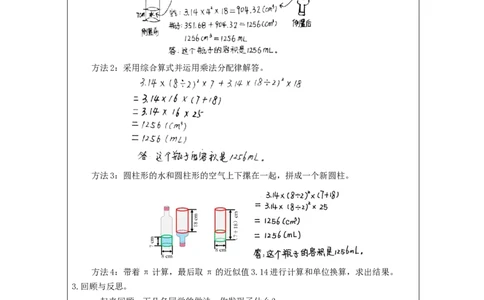 答：3.14×4²×18=904.32(cm³)
瓶子：351.68+904.32=1256(cm³)
1256cm³=1256mL
答：这个瓶子的容积是1256mL。
7cm
倒置前
倒置后
方法2：采用综合算式并运用乘法分配律解答。
3.14×(8÷2)²×7+3.14×(8÷2)²×18
=3.14×16×(7+18)
=3.14×16×25
=1256(cm³)
=1256(mL)
答：这个瓶子的容积是1256mL。
方法3：圆柱形的水和圆柱形的空气上下摞在一起，拼成一个新圆柱。
3.14×(8÷2)²×(7+18)
=3.14×(8÷2)²×25
=1256(cm³)
=1256(mL)
答：这个瓶子的容积是1256mL。
18 cm
7 cm
8 cm
8 cm
方法4：带着 π 计算，最后取 π 的近似值 3.14 进行计算和单位换算，求出结果。
3.回顾与反思。